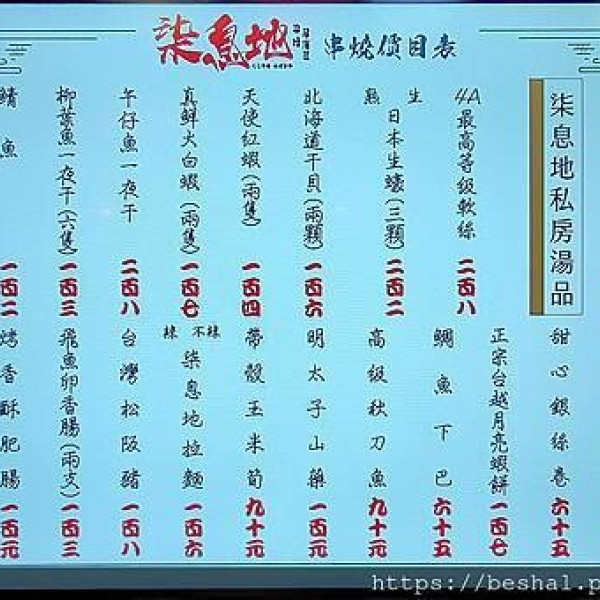 柒息地 串燒價目表
柒息地私房湯品
4A最高等級軟絲 二百八
生 熟 日本生蠔(三顆) 二百二
北海道干貝(兩顆) 一百六
天使紅蝦(兩隻) 一百四
真鮮大白蝦(兩隻) 一百七
午仔魚一夜干 二百八
柳葉魚一夜干(六隻) 一百三
鯖魚 一百二
甜心銀絲卷 六十五
正宗台越月亮蝦餅 一百七
鯛魚下巴 六十五
高級秋刀魚 九十元
明太子山藥 一百元
帶殼玉米筍 九十元
不辣 辣 柒息地拉麵 一百六
台灣松阪豬 一百八
飛魚卵香腸(兩支) 一百三
烤香酥肥腸 一百元
https://beshal.p